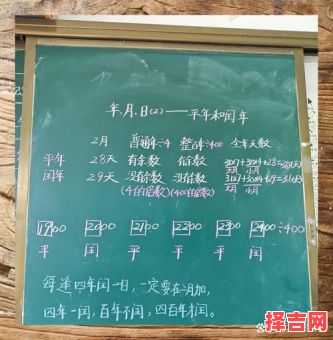 年、月、日(2)——平年和闰年
2月 普通年÷4 整百年÷400 全年天数
平年 28天 有余数 有余数 31×7+30×4+28=365(天)
大月 小月
闰年 29天 没余数 没余数 31×7+30×4+29=366(天)
(4的倍数) (400的倍数) 大月 小月
1900 2000 2100 2200 2300 2400 ÷400
平 闰 平 平 平 闰
每逢四年闰一日,一定要在2月加,
四年一闰,百年不闰,四百年才闰。
择吉网